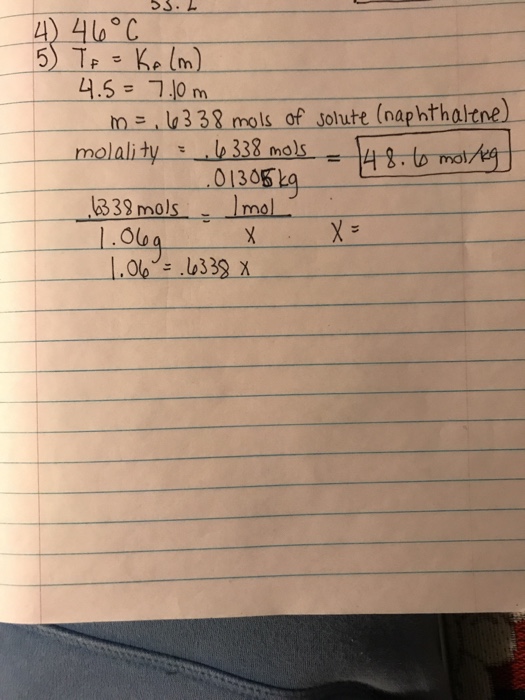 53.2
4) 46°C
5) TF = KF (m)
4.5 = 7.10 m
m = .6338 mols of solute (naphthalene)
molality = .6338 mols = 48.6 mol/kg
.01305kg
.6338 mols = 1 mol
1.06g X X =
1.06 = .6338 X